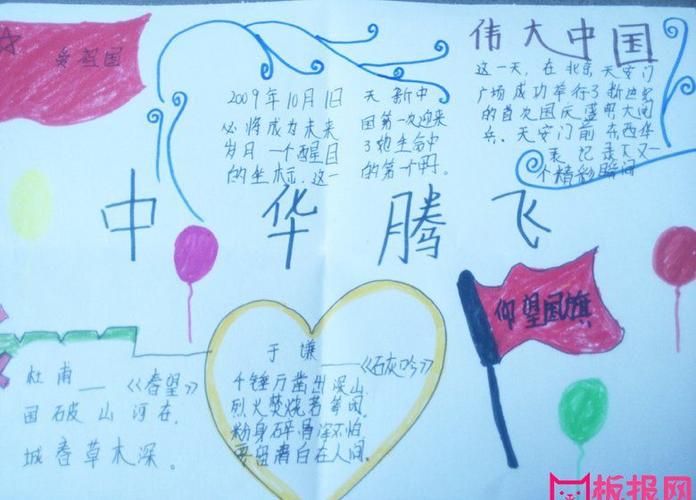 爱祖国
伟大中国
2009年10月1日
必将成为未来
岁月一个醒目
的坐标.这一
天新中
国第一次迎来
了她生命中
的第一个
这一天，在北京天安门
广场成功举行了新世纪
的首次国庆盛大阅
兵。天安门前东西华
表记录下又一
个精彩瞬间
中华腾飞
仰望国旗
杜甫——《春望》
国破山河在，
城春草木深。
于谦——《石灰吟》
千锤万凿出深山
烈火焚烧若等闲，
粉身碎骨浑不怕
要留清白在人间。
板报网